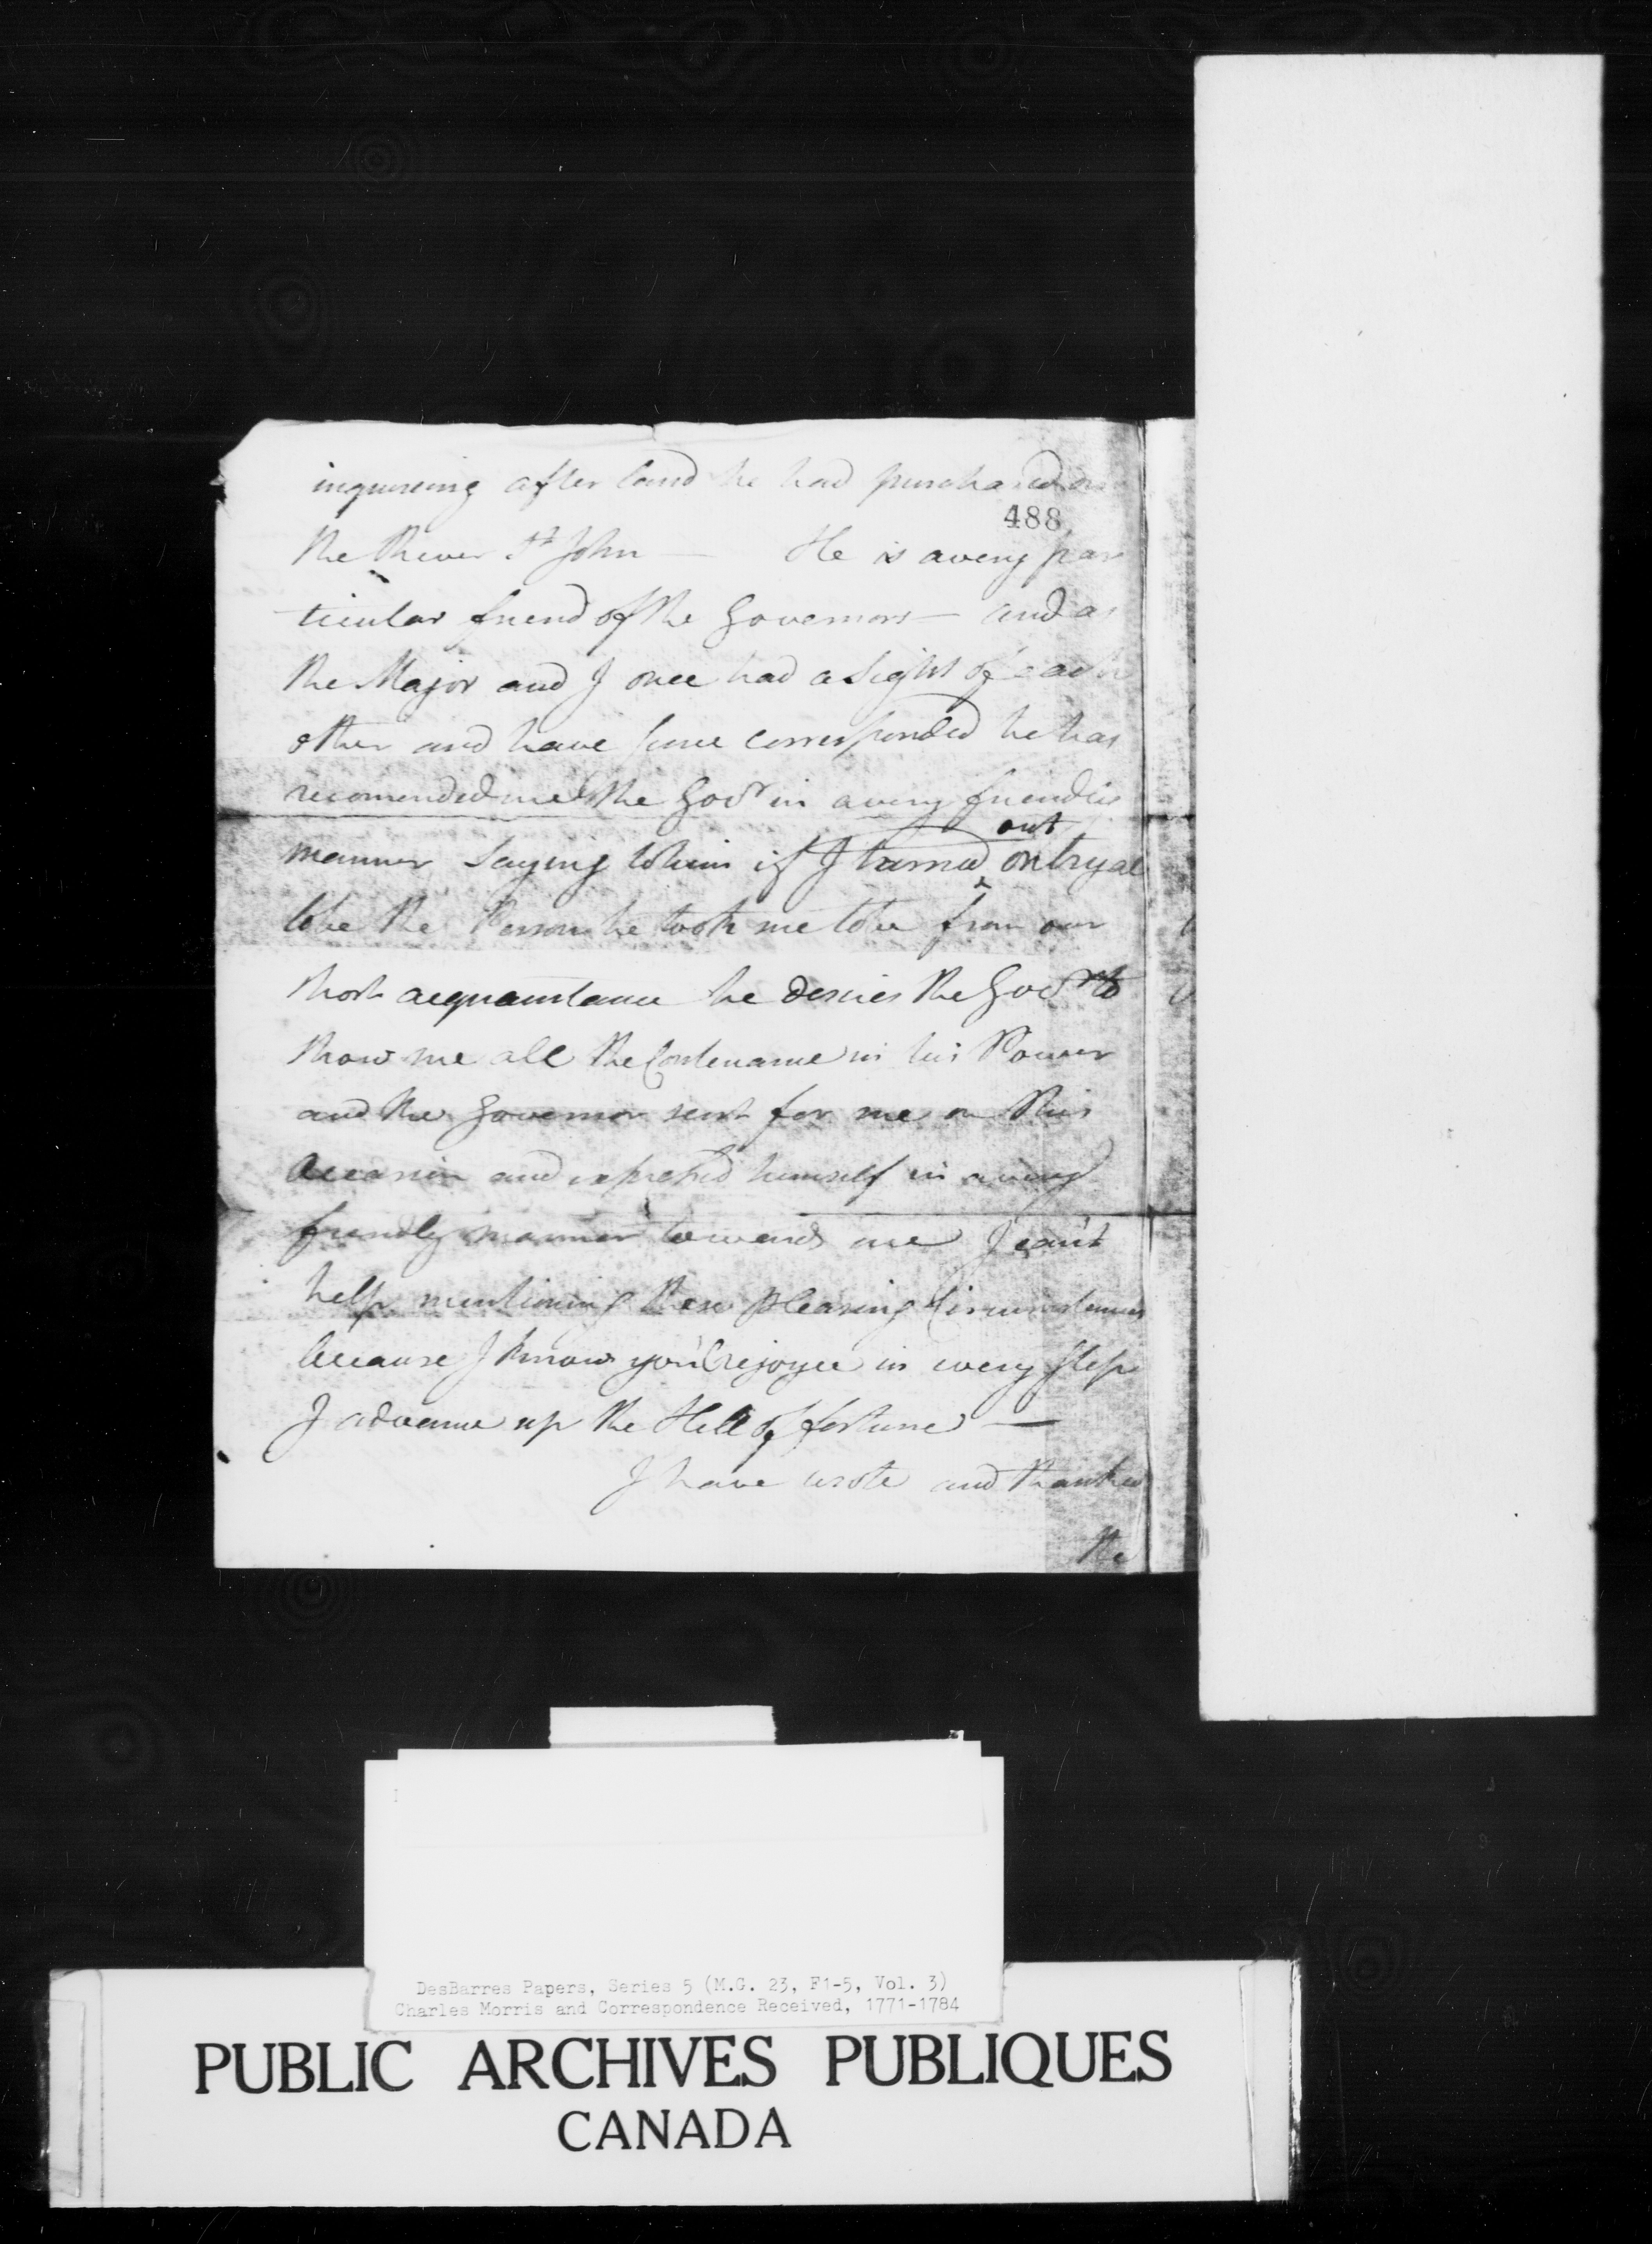 inquireing after land he had purchased on
488
the River St John — He is a very par
ticular friend of the Governors — and as
the Major and I once had a sight of each
other and have since corresponded he has
recomended me to the Govr in a very friendly
manner saying to him if I turned out on tryal
to be the Person he took me to be from our
short acquaintance he desires the Govr to
show me all the Contenance in his Power
and the Governor sent for me on this
occasion and expressed himself in a very
friendly manner towards me I can't
help mentioning these pleasing Circumstances
because I know you'l rejoyce in every step
I advance up the Hill of fortune —
I have wrote and thanked
the
DesBarres Papers, Series 5 (M.G. 23, F1-5, Vol. 3)
Charles Morris and Correspondence Received, 1771-1784
PUBLIC ARCHIVES PUBLIQUES
CANADA